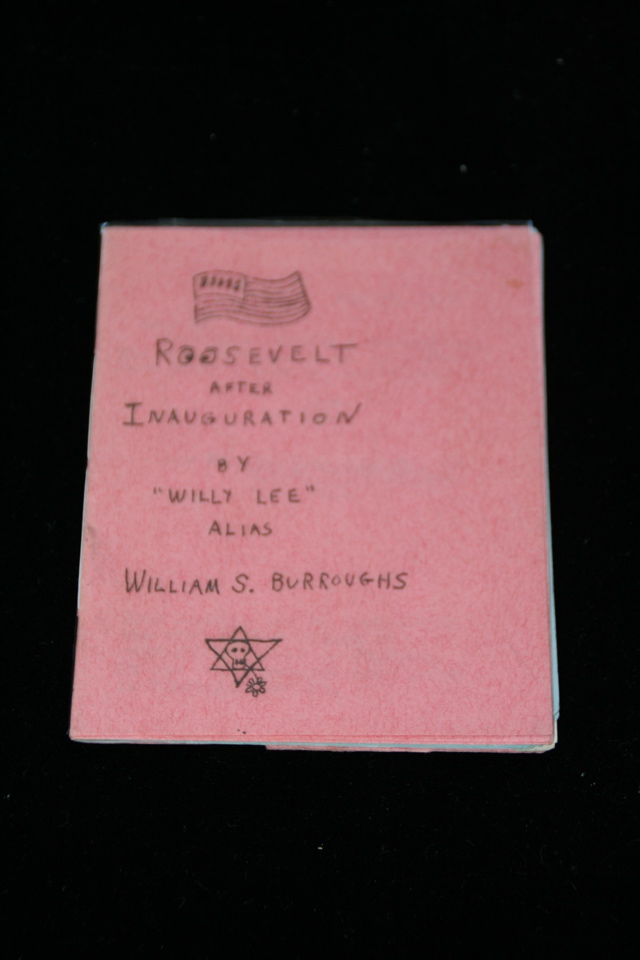 ROOSEVELT
AFTER
INAUGURATION
BY
"WILLY LEE"
ALIAS
WILLIAM S. BURROUGHS